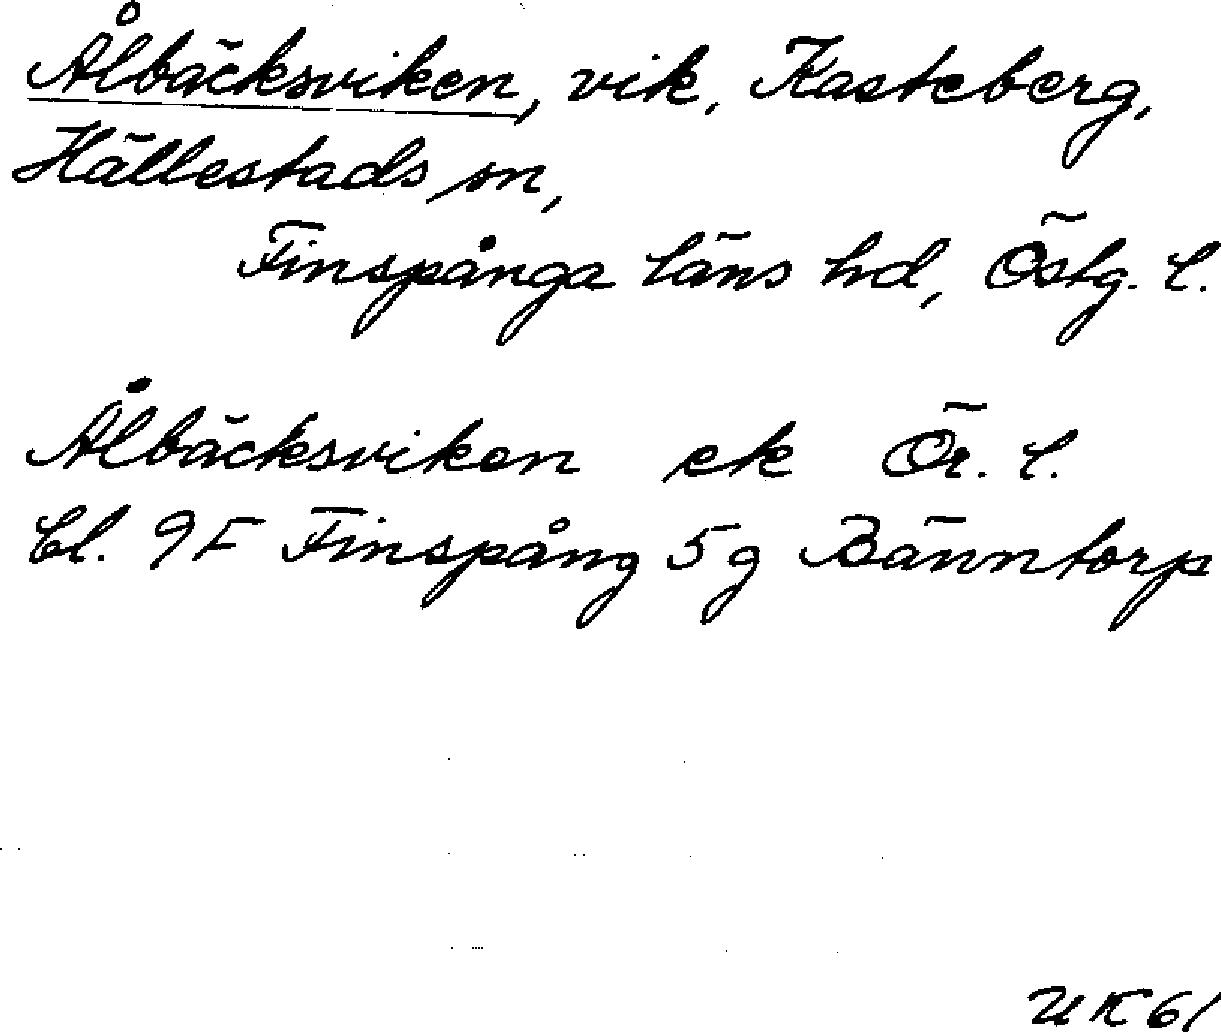 Ålbäcksviken, vik, Kasteberg,
Hällestads sn,
Finspånga läns hd, Östg. l.
Ålbäcksviken ek Ör. l.
bl. 9F Finspång 5g Bänntorp
UK61